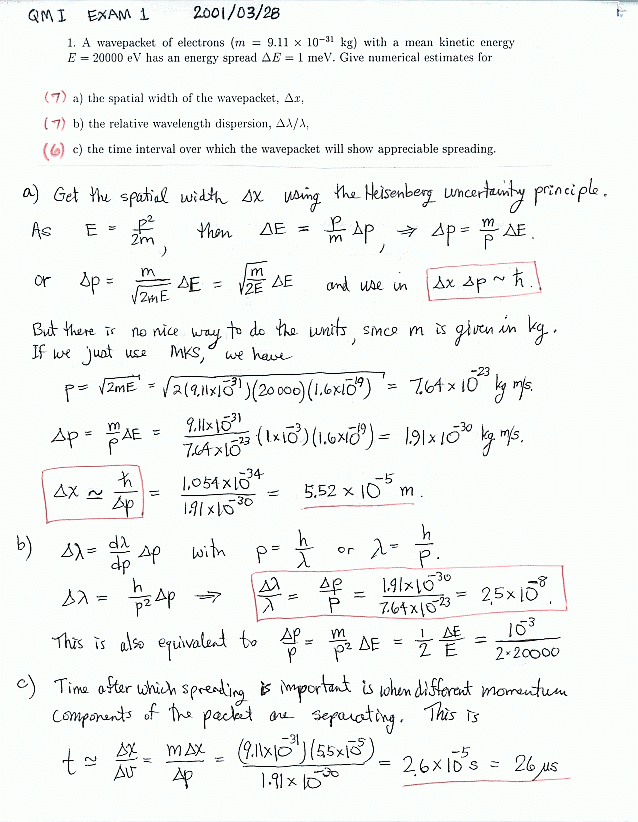 QM I EXAM 1 2001/03/28
1. A wavepacket of electrons (m = 9.11 × 10⁻³¹ kg) with a mean kinetic energy
E = 20000 eV has an energy spread ΔE = 1 meV. Give numerical estimates for
(7) a) the spatial width of the wavepacket, Δx,
(7) b) the relative wavelength dispersion, Δλ/λ,
(6) c) the time interval over which the wavepacket will show appreciable spreading.
a) Get the spatial width Δx using the Heisenberg uncertainty principle.
As E = p²/2m, then ΔE = p/m Δp, ⇒ Δp = m/p ΔE.
or Δp = m/√2mE ΔE = √m/2E ΔE and use in Δx Δp ~ ħ.
But there is no nice way to do the units, since m is given in kg.
If we just use MKS, we have
p = √2mE = √2(9.11×10⁻³¹)(20000)(1.6×10⁻¹⁹) = 7.64 × 10⁻²³ kg m/s.
Δp = m/p ΔE = 9.11×10⁻³¹/7.64×10⁻²³ (1×10⁻³)(1.6×10⁻¹⁹) = 1.91 × 10⁻³⁰ kg m/s.
Δx ≃ ħ/Δp = 1.054×10⁻³⁴/1.91×10⁻³⁰ = 5.52 × 10⁻⁵ m.
b) Δλ = dλ/dp Δp with p = h/λ or λ = h/p.
Δλ = h/p² Δp ⇒ Δλ/λ = Δp/p = 1.91×10⁻³⁰/7.64×10⁻²³ = 2.5×10⁻⁸.
This is also equivalent to Δp/p = m/p² ΔE = 1/2 ΔE/E = 10⁻³/2·20000
c) Time after which spreading is important is when different momentum
components of the packet are separating. This is
t ≃ Δx/Δv = mΔx/Δp = (9.11×10⁻³¹)(5.5×10⁻⁵)/1.91×10⁻³⁰ = 2.6×10⁻⁵ s = 26 μs